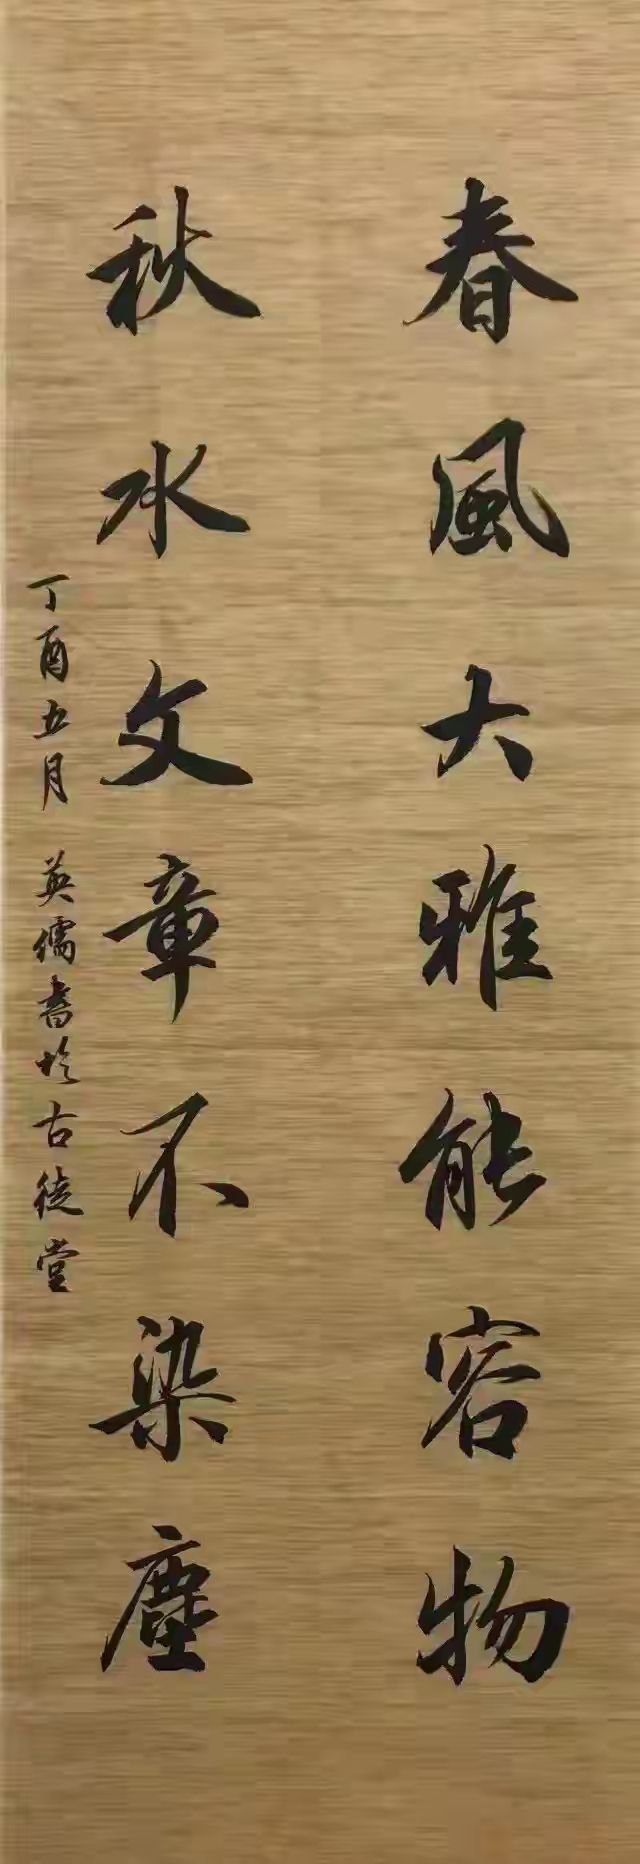 春風大雅能容物
秋水文章不染塵
丁酉五月 英儒書於古徒堂